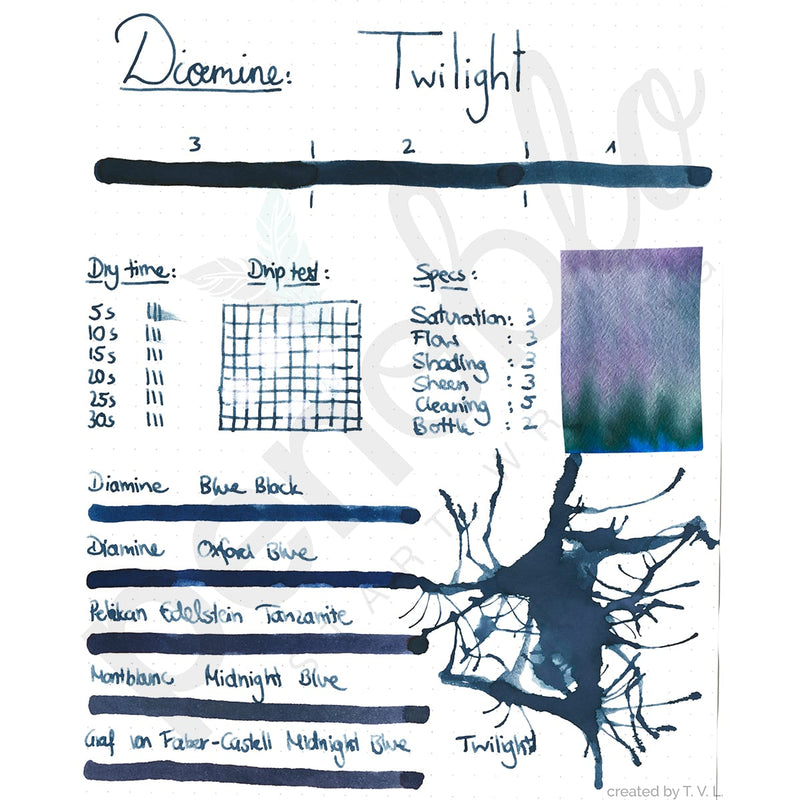 Diamine: Twilight
3 2 1
Dry time:
5s
10s
15s
20s
25s
30s
Drip test:
Specs:
Saturation: 3
Flow : 3
Shading : 3
Sheen : 3
Cleaning : 5
Bottle : 2
Diamine Blue Black
Diamine Oxford Blue
Pelikan Edelstein Tanzanite
Montblanc Midnight Blue
Graf von Faber-Castell Midnight Blue
Twilight
penoblo
START WR
created by T. V. L.